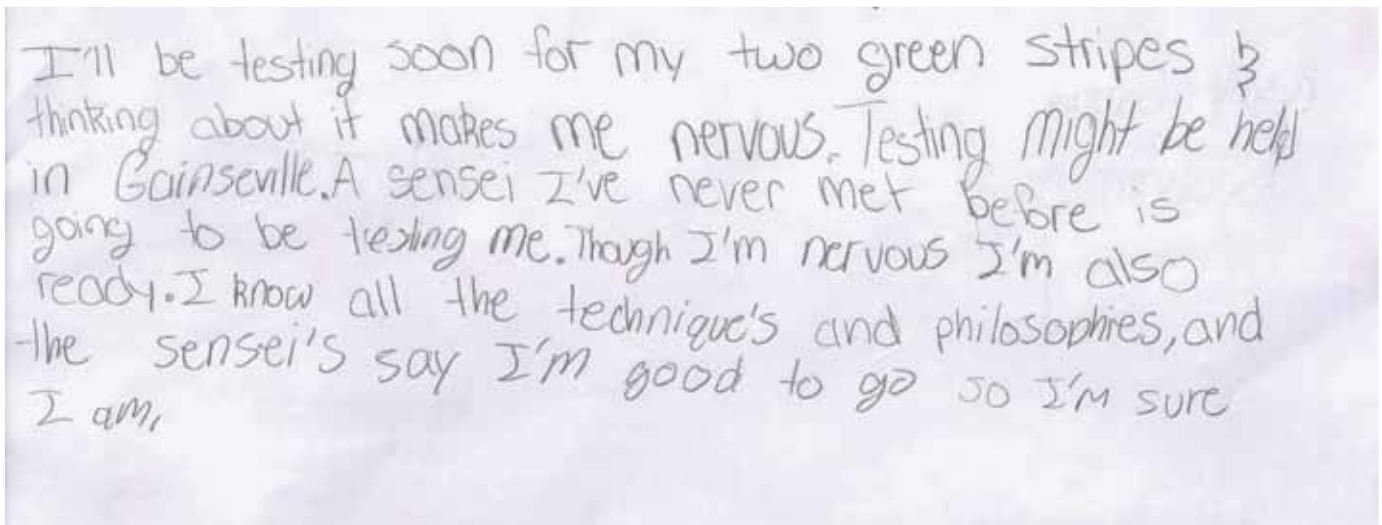 I'll be testing soon for my two green stripes &
thinking about it makes me nervous. Testing might be held
in Gainseville. A sensei I've never met before is
going to be testing me. Though I'm nervous I'm also
ready. I know all the technique's and philosophies, and
the sensei's say I'm good to go so I'm sure
I am,